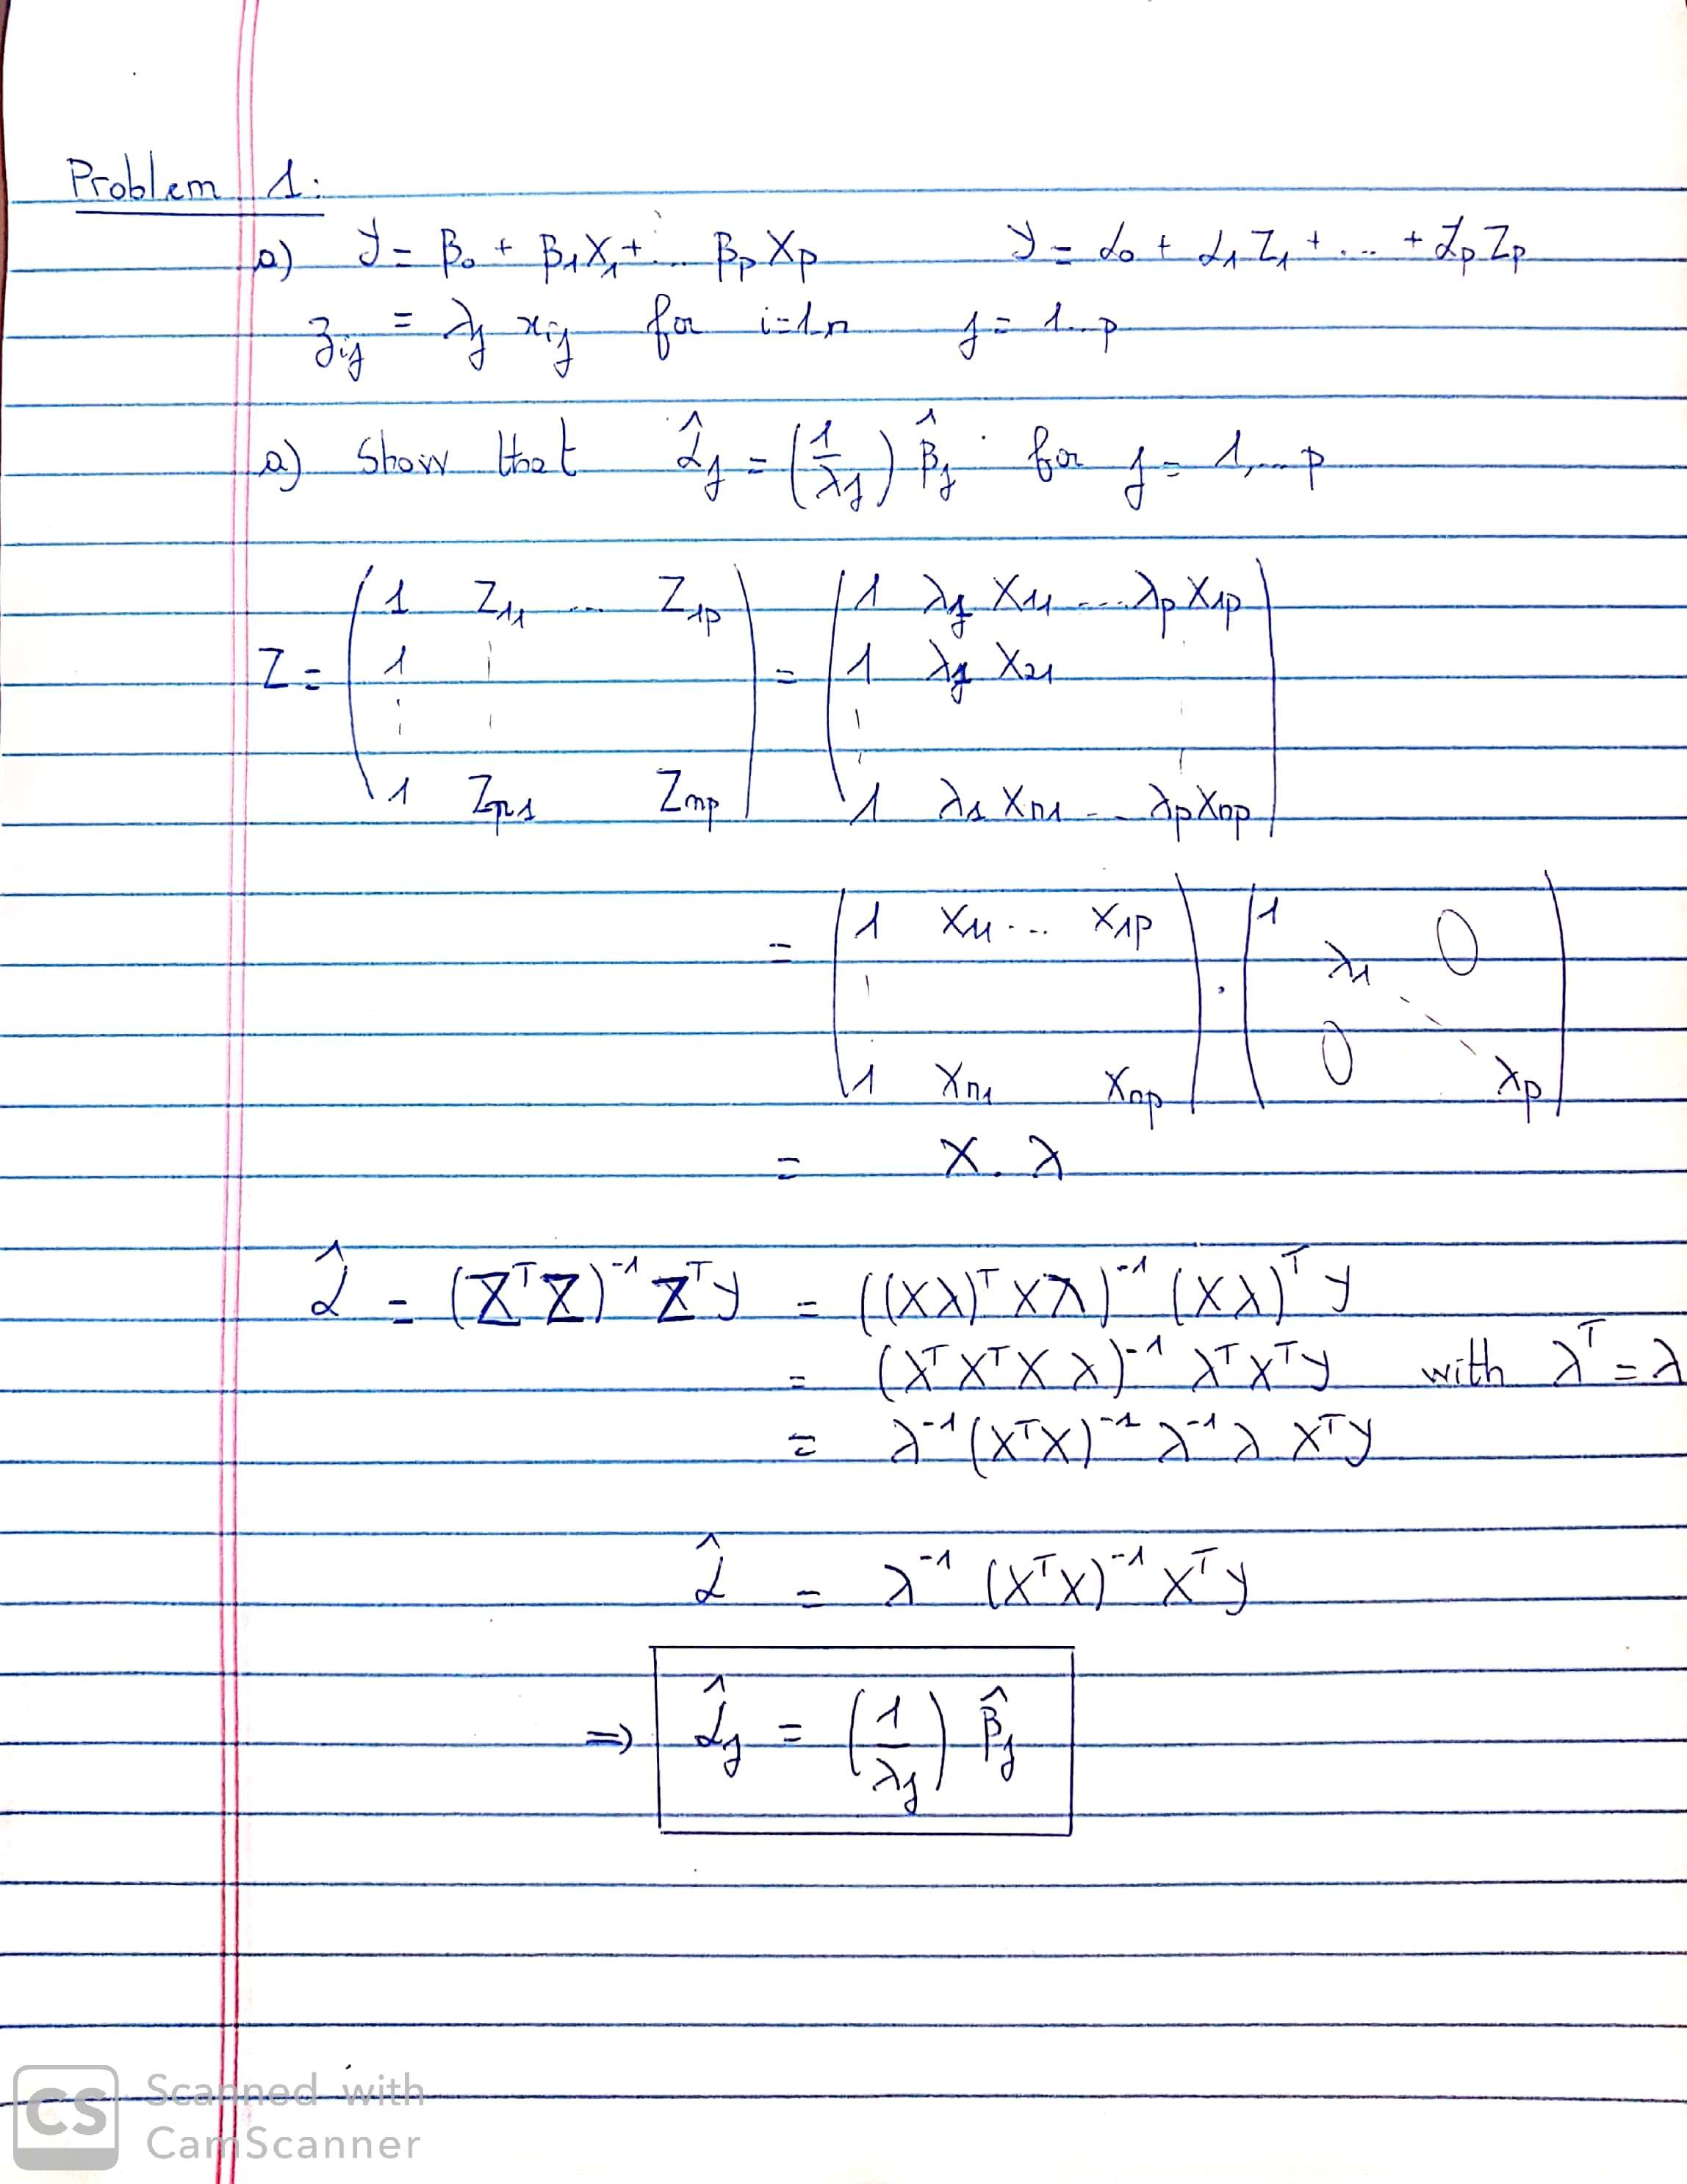 Problem 1:
a) y = β₀ + β₁X₁ + ... βp Xp y = α₀ + α₁Z₁ + ... + αp Zp
zij = λj xij for i=1..n j = 1..p
a) Show that α̂j = (1/λj) β̂j for j = 1,...p
Z = ( 1 Z11 ... Z1p ) = ( 1 λj X11 ... λp X1p )
1 1 λj X21
1 Zn1 Znp 1 λ1 Xn1 ... λp Xnp
= ( 1 X11 ... X1p ) . ( 1 λ1 0
1 Xn1 Xnp 0 λp )
= X . λ
α̂ = (ZᵀZ)⁻¹ Zᵀy = ((Xλ)ᵀ Xλ)⁻¹ (Xλ)ᵀ y
= (XᵀXᵀX λ)⁻¹ λᵀXᵀy with λᵀ = λ
= λ⁻¹ (XᵀX)⁻¹ λ⁻¹ λ Xᵀy
α̂ = λ⁻¹ (XᵀX)⁻¹ Xᵀy
⇒ α̂j = (1/λj) β̂j
CS Scanned with
CamScanner